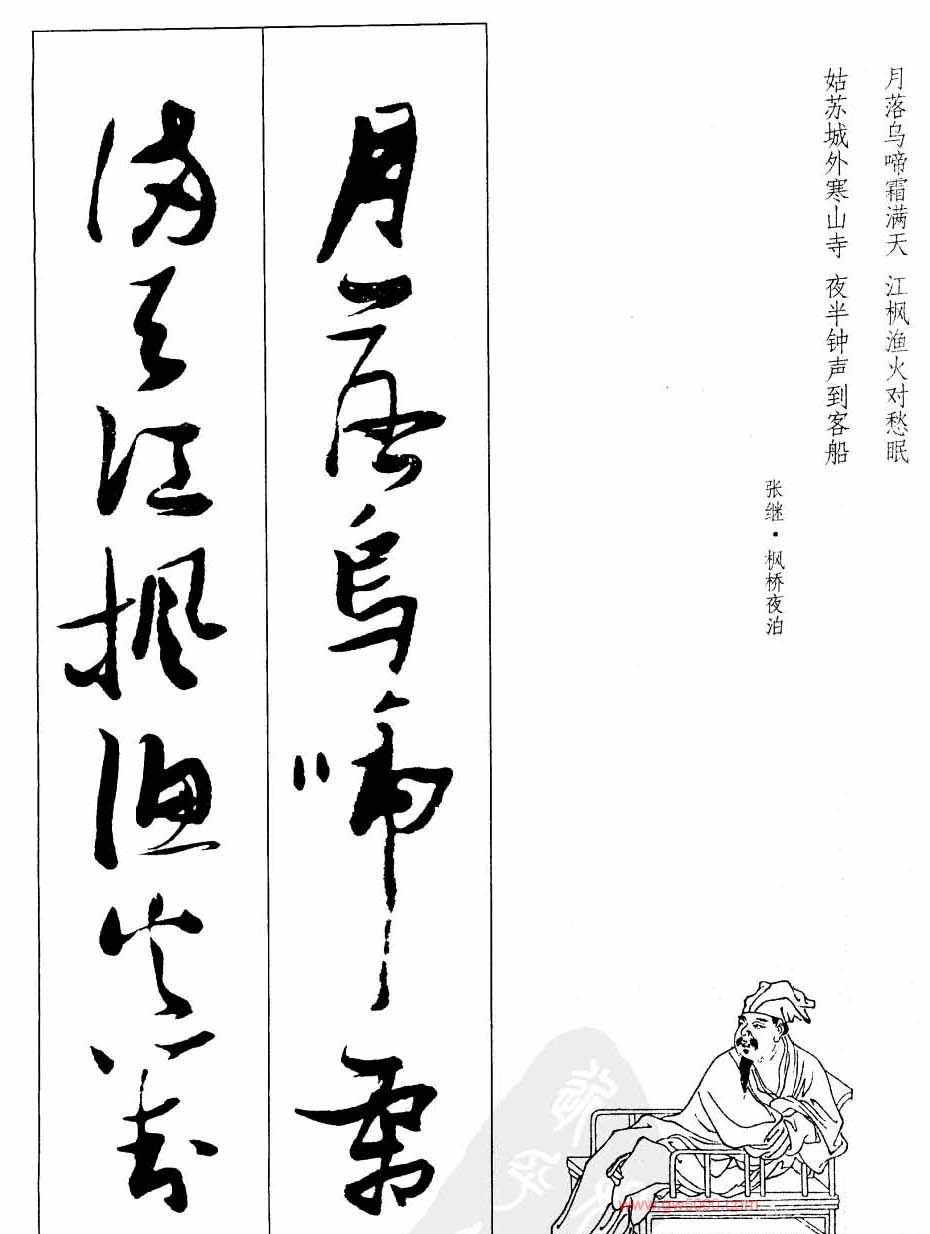 月落乌啼霜满天 江枫渔火对愁眠
姑苏城外寒山寺 夜半钟声到客船
张继·枫桥夜泊
月落烏啼霜
满天江楓漁火對
www.gw5000.com